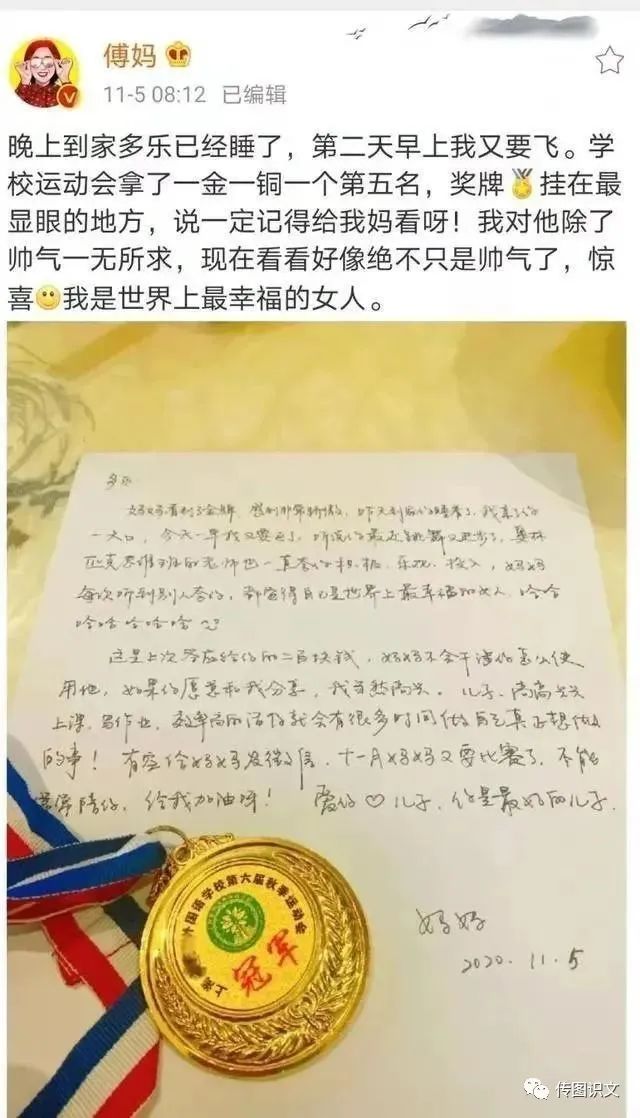 傅妈
11-5 08:12 已编辑
晚上到家多乐已经睡了，第二天早上我又要飞。学
校运动会拿了一金一铜一个第五名，奖牌🏅挂在最
显眼的地方，说一定记得给我妈看呀！我对他除了
帅气一无所求，现在看看好像绝不只是帅气了，惊
喜🙂我是世界上最幸福的女人。
多乐
妈妈看到了金牌，感到非常骄傲，昨天到家你睡着了，我亲了你
一大口，今天一早我又要飞了，听说你最近跳舞又进步了，奥林
匹克思维班的老师也一直夸你积极、乐观、投入，妈妈
每次听到别人夸你，都觉得自己是世界上最幸福的女人，哈哈
哈哈哈哈哈
这是上次答应给你的二百块钱，妈妈不会干涉你怎么使
用他，如果你愿意和我分享，我当然高兴。儿子，高高兴兴
上课，写作业，效率高的话你就会有很多时间做自己真正想做
的事！有空给妈妈发微信，十一月妈妈又要比赛了，不能
陪你，给我加油呀！爱你♡儿子，你是最好的儿子
妈妈
2020.11.5
上海 外国语学校第六届秋季运动会
冠军
传图识文